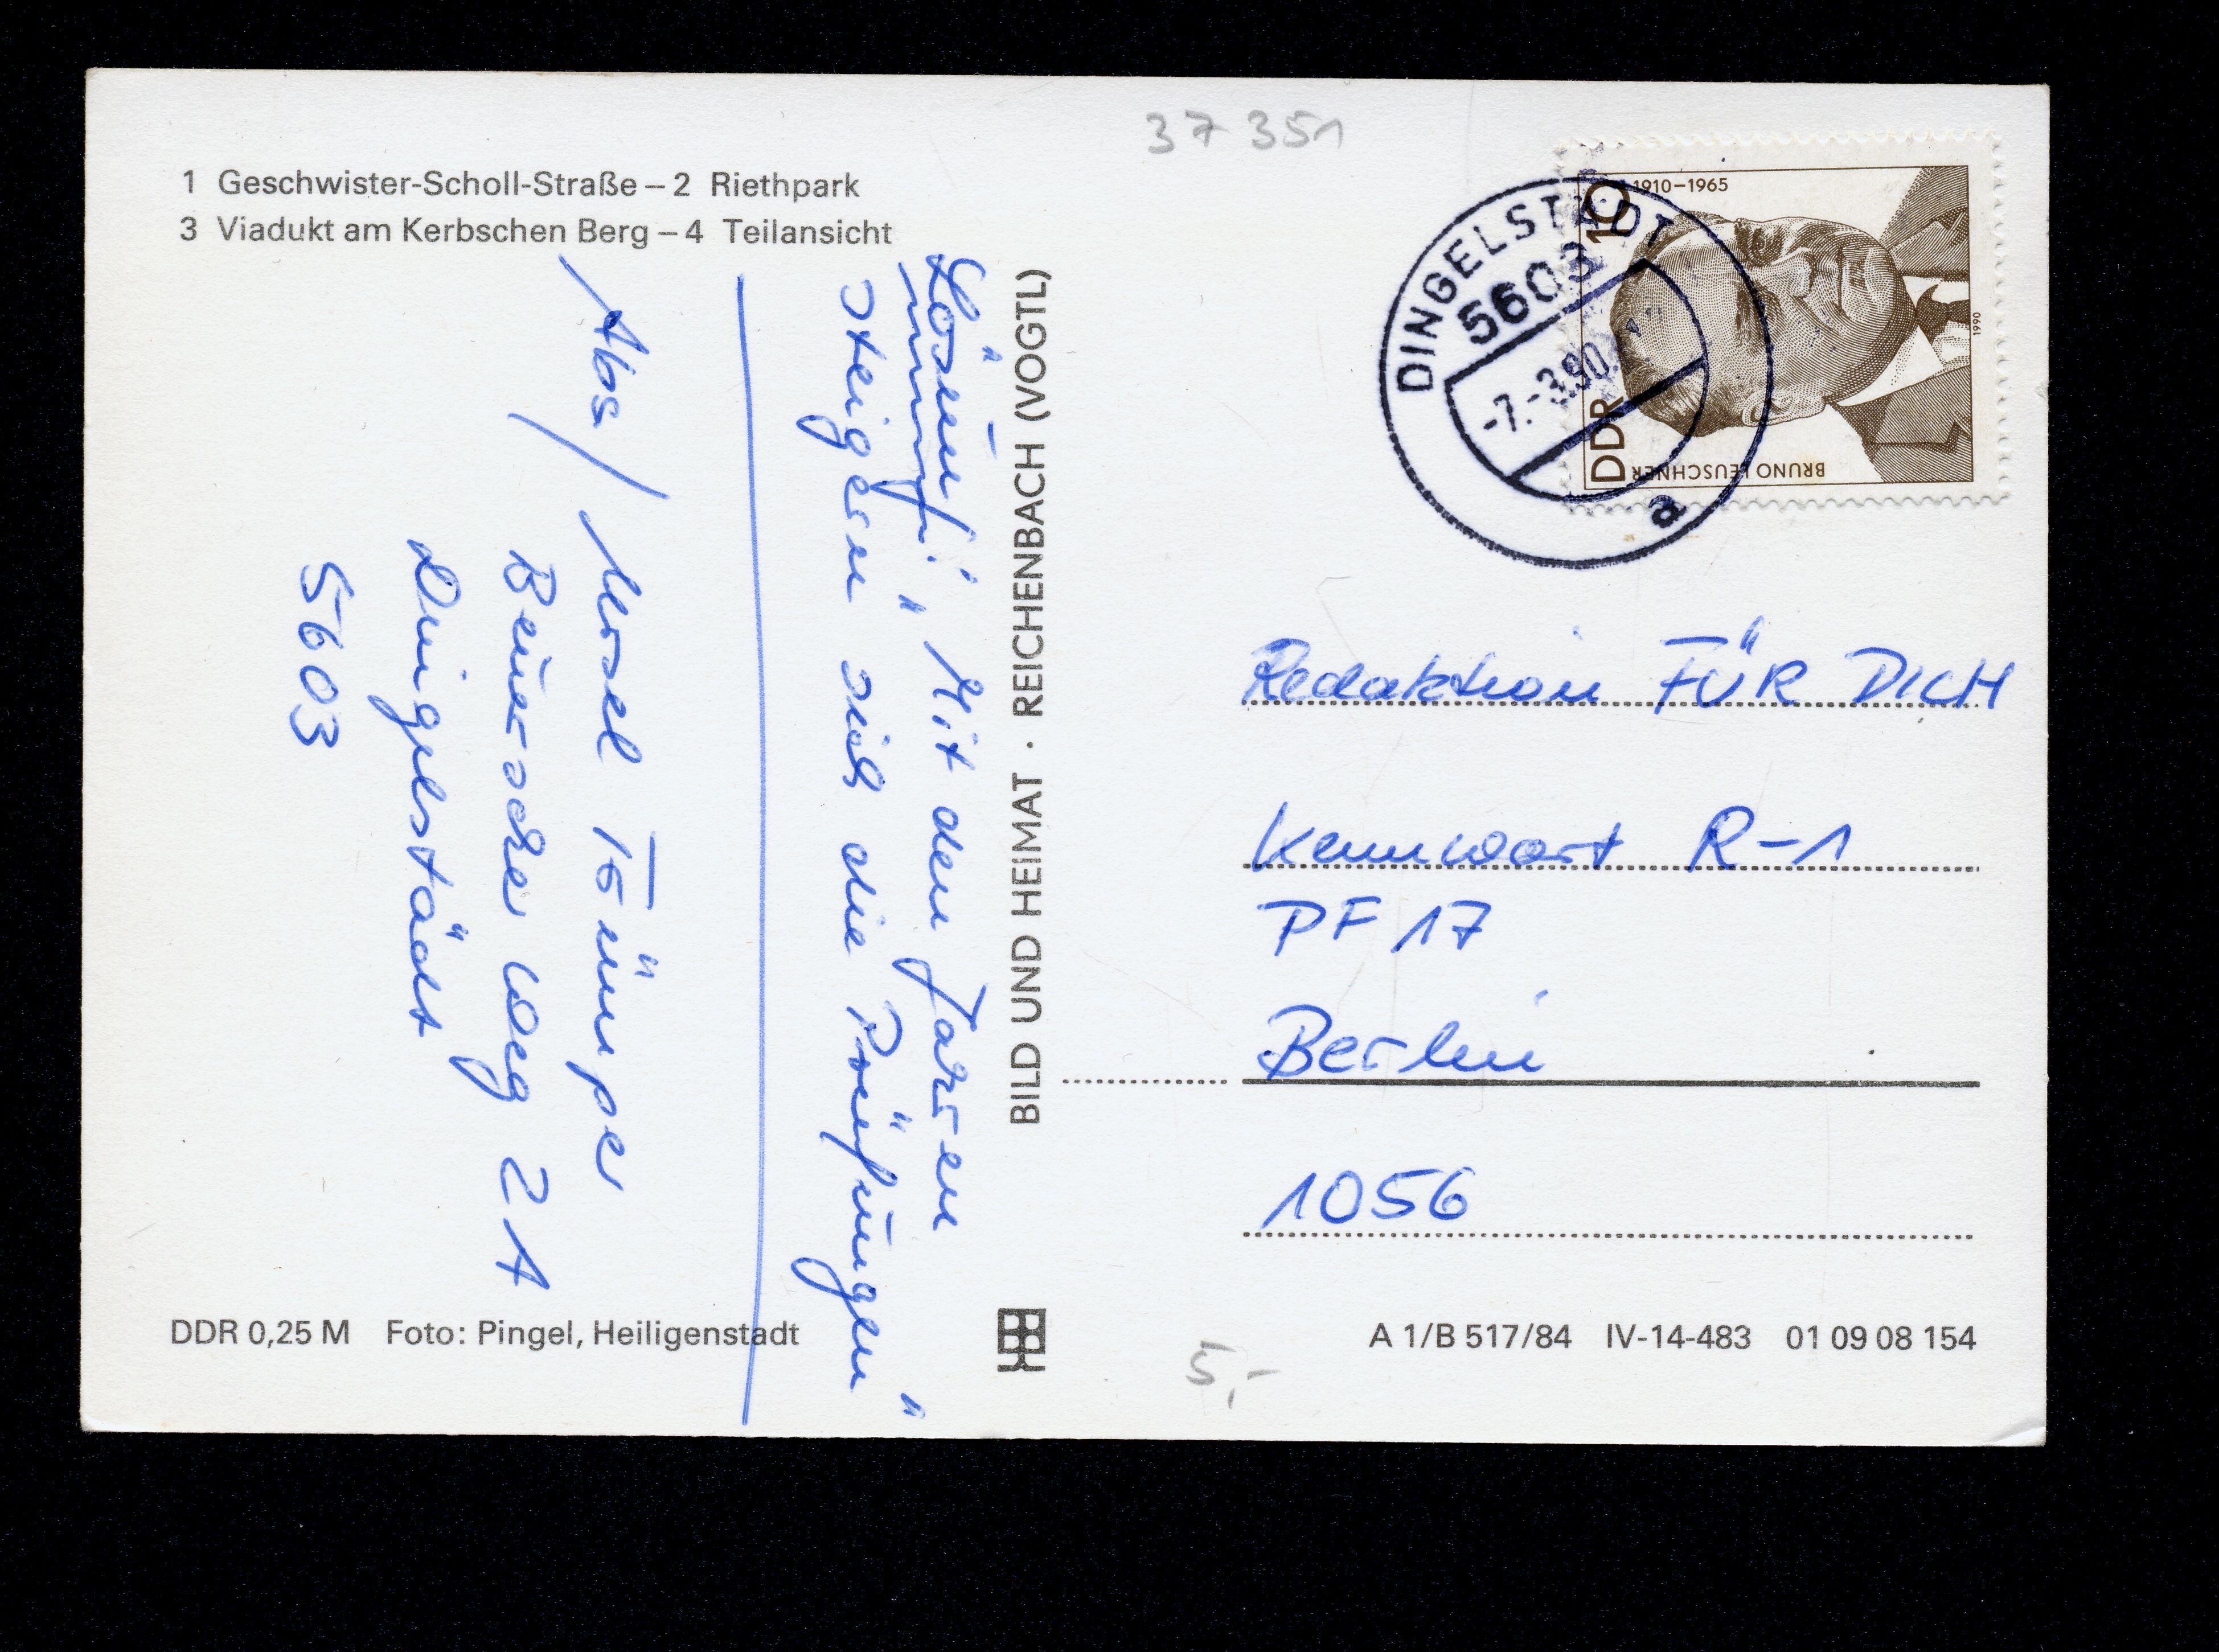 37 351
1 Geschwister-Scholl-Straße – 2 Riethpark
3 Viadukt am Kerbschen Berg – 4 Teilansicht
Lösung: "Mit den Jahren
steigern sich die Prüfungen"
Abs/ Ursel Tömpel
Beuerscher Weg 2A
Dingelstädt
5603
BILD UND HEIMAT · REICHENBACH (VOGTL)
DDR 0,25 M Foto: Pingel, Heiligenstadt
DINGELSTÄDT
5603
-7.-3.90
a
10
1910–1965
DDR
BRUNO LEUSCHNER
1990
Redaktion FÜR DICH
Kennwort R-1
PF 17
Berlin
1056
5,-
A 1/B 517/84 IV-14-483 01 09 08 154